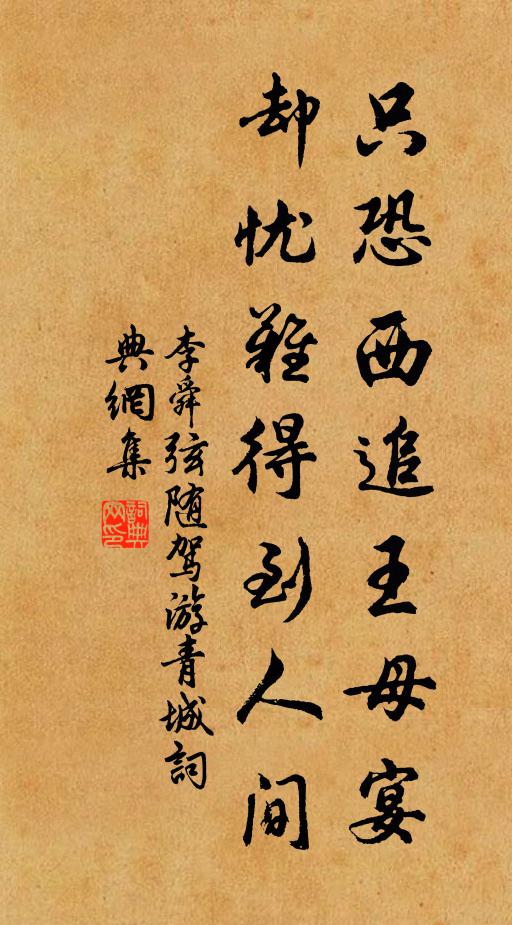 只恐西追王母宴
却忧難得到人间
李舜弦随驾游青城詞
典網集
詞典
网印